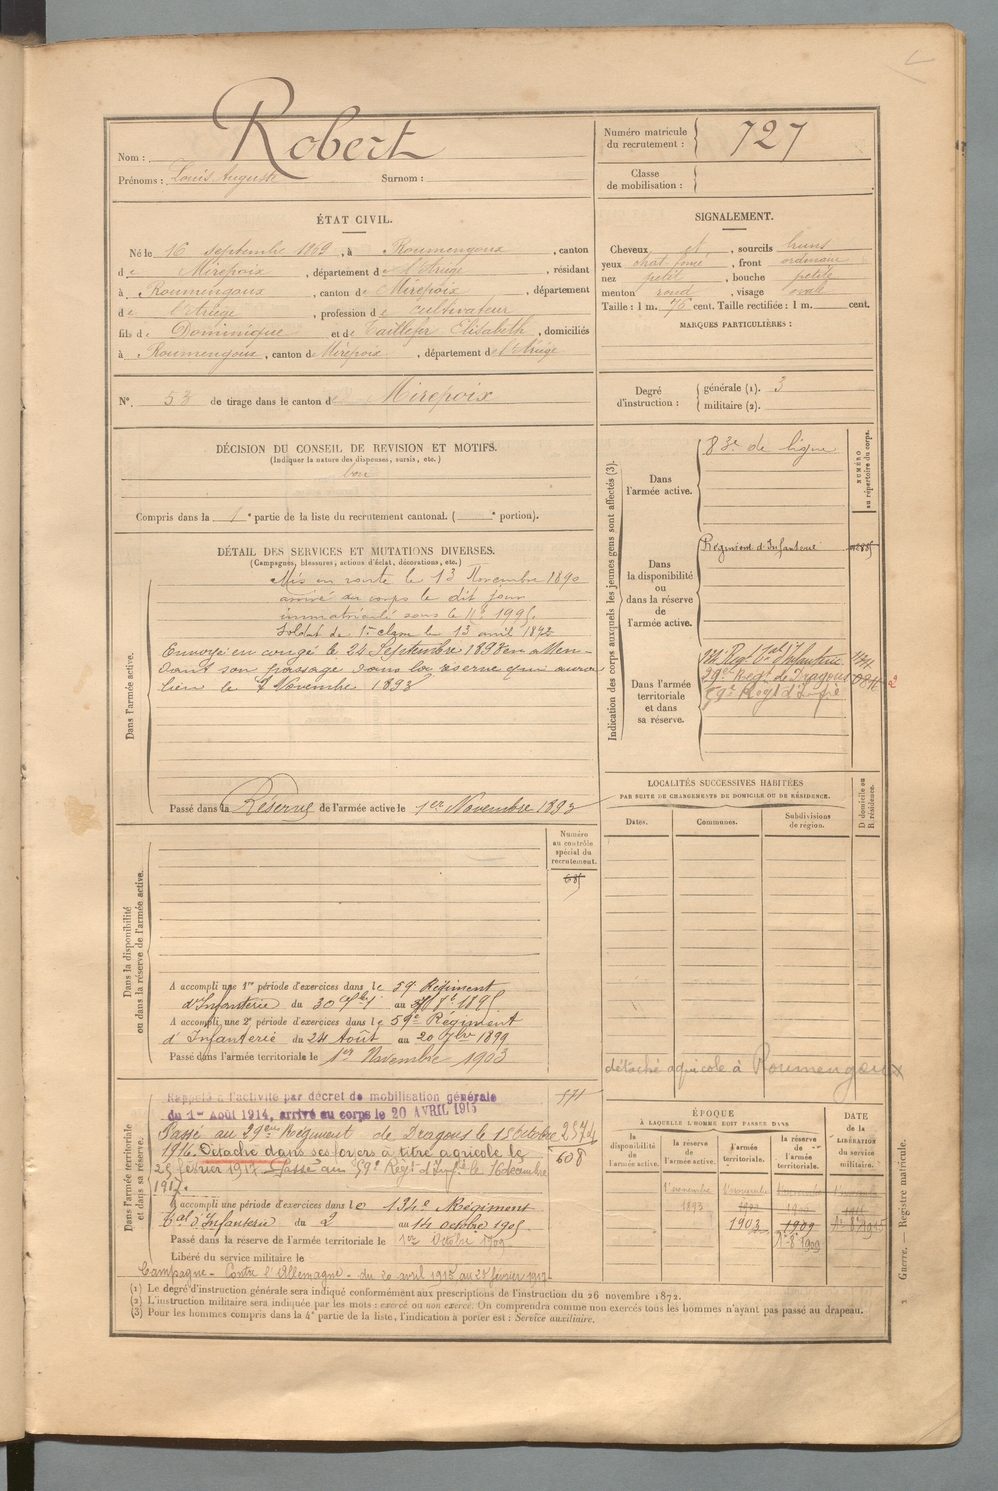 Nom : Robert
Prénoms : Louis Auguste Surnom :
Numéro matricule du recrutement : 727
Classe de mobilisation :
ÉTAT CIVIL.
Né le 16 septembre 1869, à Roumengoux, canton
de Mirepoix, département de l'Ariège, résidant
à Roumengoux, canton de Mirepoix, département
de l'Ariège, profession de cultivateur
fils de Dominique et de Taillefer Elisabeth, domiciliés
à Roumengoux, canton de Mirepoix, département de l'Ariège
SIGNALEMENT.
Cheveux et, sourcils bruns
yeux chat. foncé, front ordinaire
nez petit, bouche petite
menton rond, visage ovale
Taille : 1 m. 76 cent. Taille rectifiée : 1 m. cent.
MARQUES PARTICULIÈRES :
N° 53 de tirage dans le canton de Mirepoix
Degré d'instruction : générale (1). 3
militaire (2).
DÉCISION DU CONSEIL DE REVISION ET MOTIFS.
(Indiquer la nature des dispenses, sursis, etc.)
bon
Compris dans la 1e partie de la liste du recrutement cantonal. ( e portion).
DÉTAIL DES SERVICES ET MUTATIONS DIVERSES.
(Campagnes, blessures, actions d'éclat, décorations, etc.)
Dans l'armée active.
Mis en route le 13 Novembre 1890
arrivé au corps le dit jour
immatriculé sous le N°
Soldat de 1re classe le 13 avril 1892
Envoyé en congé le 24 Septembre 1893 en atten-
dant son passage dans la réserve qui aura
lieu le 1 Novembre 1893
Passé dans la Réserve de l'armée active le 1er Novembre 1893
Indication des corps auxquels les jeunes gens sont affectés (3).
NUMÉRO au répertoire du corps.
Dans l'armée active.
83e de ligne
Dans la disponibilité ou dans la réserve de l'armée active.
Régiment d'Infanterie
Dans l'armée territoriale et dans sa réserve.
134 Régt Tal d'Infanterie
29e Régt de Dragons
59e Régt d'Infie
LOCALITÉS SUCCESSIVES HABITÉES
PAR SUITE DE CHANGEMENTS DE DOMICILE OU DE RÉSIDENCE.
Dates.
Communes.
Subdivisions de région.
D domicile ou R résidence.
détaché agricole à Roumengoux
Numéro au contrôle spécial du recrutement.
Dans la disponibilité ou dans la réserve de l'armée active.
A accompli une 1re période d'exercices dans le 59e Régiment
d'Infanterie du 30 au
A accompli une 2e période d'exercices dans le 59e Régiment
d'Infanterie du 24 Août au 20 7bre 1899
Passé dans l'armée territoriale le 1er Novembre 1903
Dans l'armée territoriale et dans sa réserve.
Rappelé à l'activité par décret de mobilisation générale
du 1er Août 1914, arrivé au corps le 20 AVRIL 1915
Passé au 29eme Régiment de Dragons le 15 Octobre 2574
1916. Détaché dans ses foyers à titre agricole le 608
25 février 1917. Passé au 59e Régt d'Inf le 16 décembre
1917.
A accompli une période d'exercices dans le 134e Régiment
Tal d'Infanterie du 2 au 14 octobre 1905
Passé dans la réserve de l'armée territoriale le 1er Octobre 1909
Libéré du service militaire le
Campagne - Contre l'Allemagne - du 20 avril 1915 au 25 février 1917
ÉPOQUE
À LAQUELLE L'HOMME DOIT PASSER DANS
la disponibilité de l'armée active.
la réserve de l'armée active.
l'armée territoriale.
la réserve de l'armée territoriale.
DATE de la LIBÉRATION du service militaire.
1 novembre 1893
1 novembre
1903
1909
1er 8bre 1909
Guerre. — Registre matricule.
(1) Le degré d'instruction générale sera indiqué conformément aux prescriptions de l'instruction du 26 novembre 1872.
(2) L'instruction militaire sera indiquée par les mots : exercé ou non exercé. On comprendra comme non exercés tous les hommes n'ayant pas passé au drapeau.
(3) Pour les hommes compris dans la 4e partie de la liste, l'indication à porter est : Service auxiliaire.